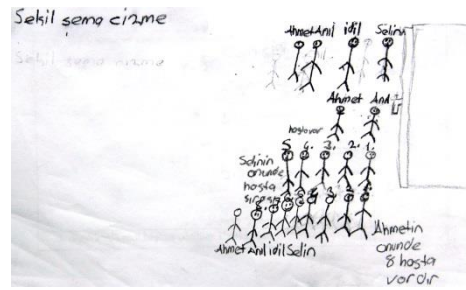 Şekil şema cizme
Ahmet Anıl idil Selin
Ahmet Anıl
5. 4. 3. 2. 1.
Selinin
önünde
hasta
Ahmet Anıl idil Selin
Ahmetin
önünde
8 hasta
vardır